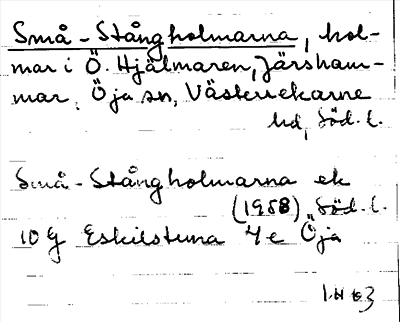 Små-Stångholmarna, hol-
mar i Ö. Hjälmaren, Järsham-
mar, Öja sn, Västerrekarne
hd, Söd. l.
Små-Stångholmarna ek
(1958) Söd. l.
10 G Eskilstuna 4 e Öja